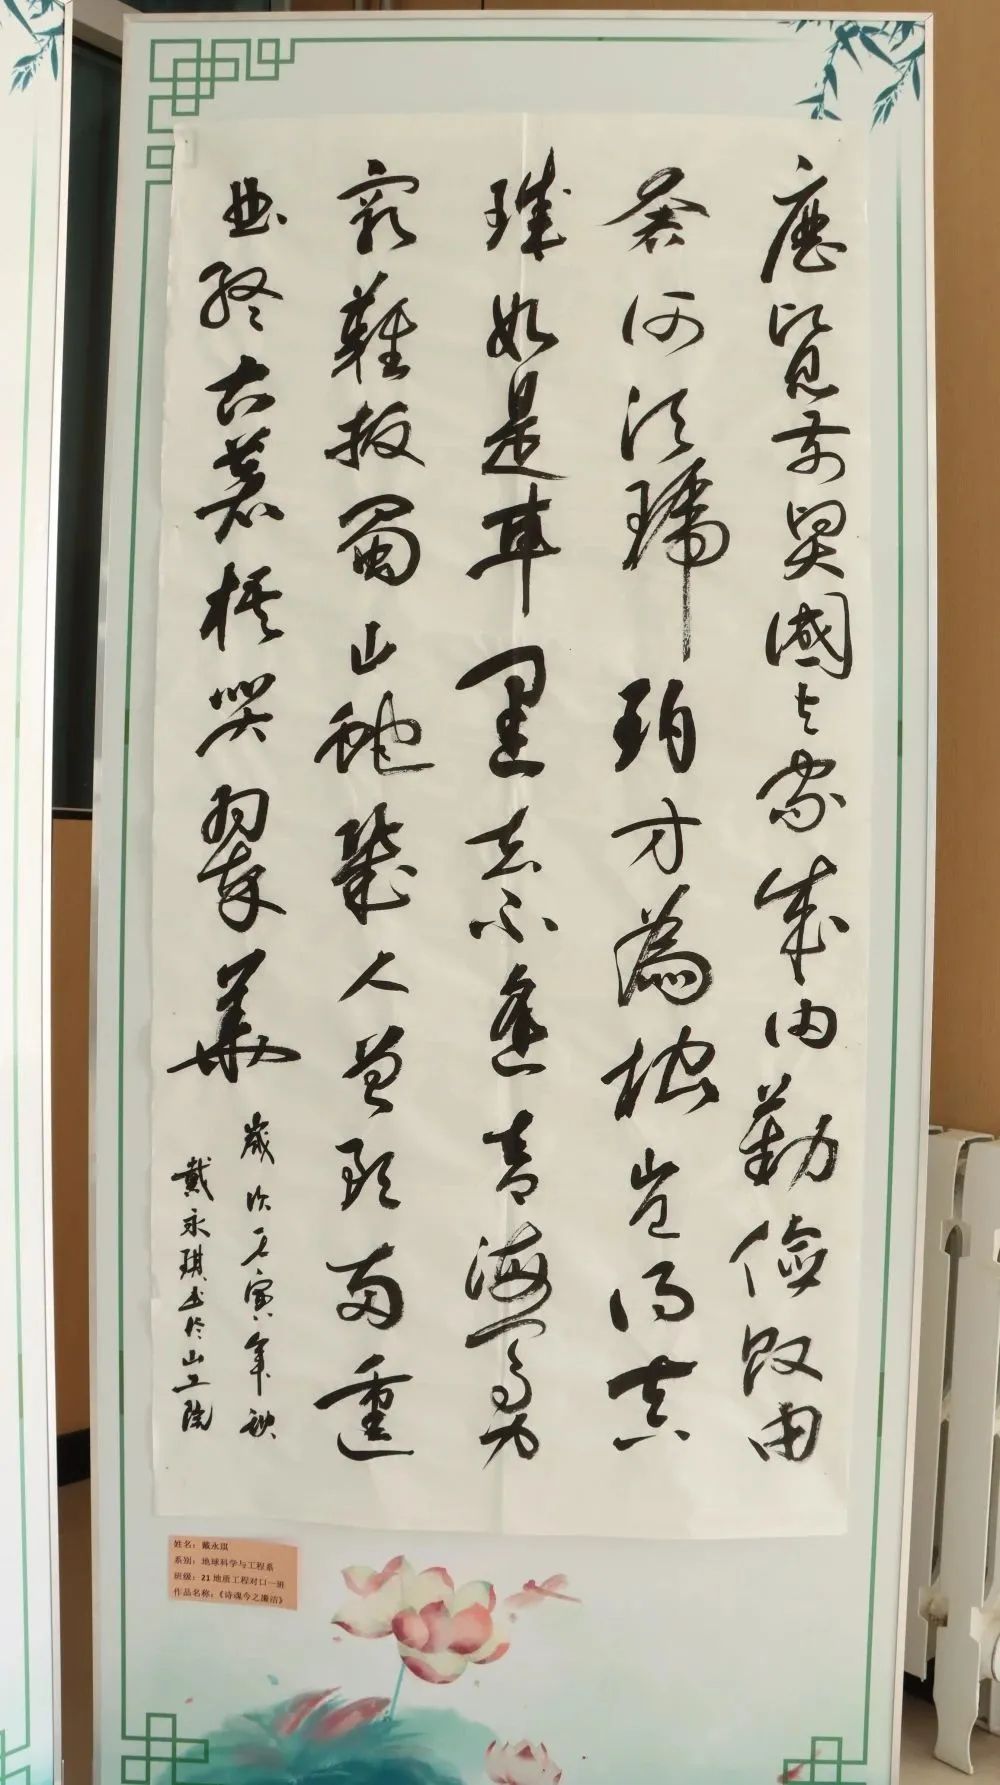 歷覽前賢國与家成由勤儉敗由
奢何須琥珀方為枕豈得真
珠始是車運去不逢青海馬力
窮難拔蜀山蛇幾人曾預南薰
曲終古蒼梧哭翠華
歲次壬寅年秋
戴永琪书於山工院
姓名：戴永琪
系别：地球科学与工程系
班级：21 地质工程对口一班
作品名称：《诗魂今之廉洁》